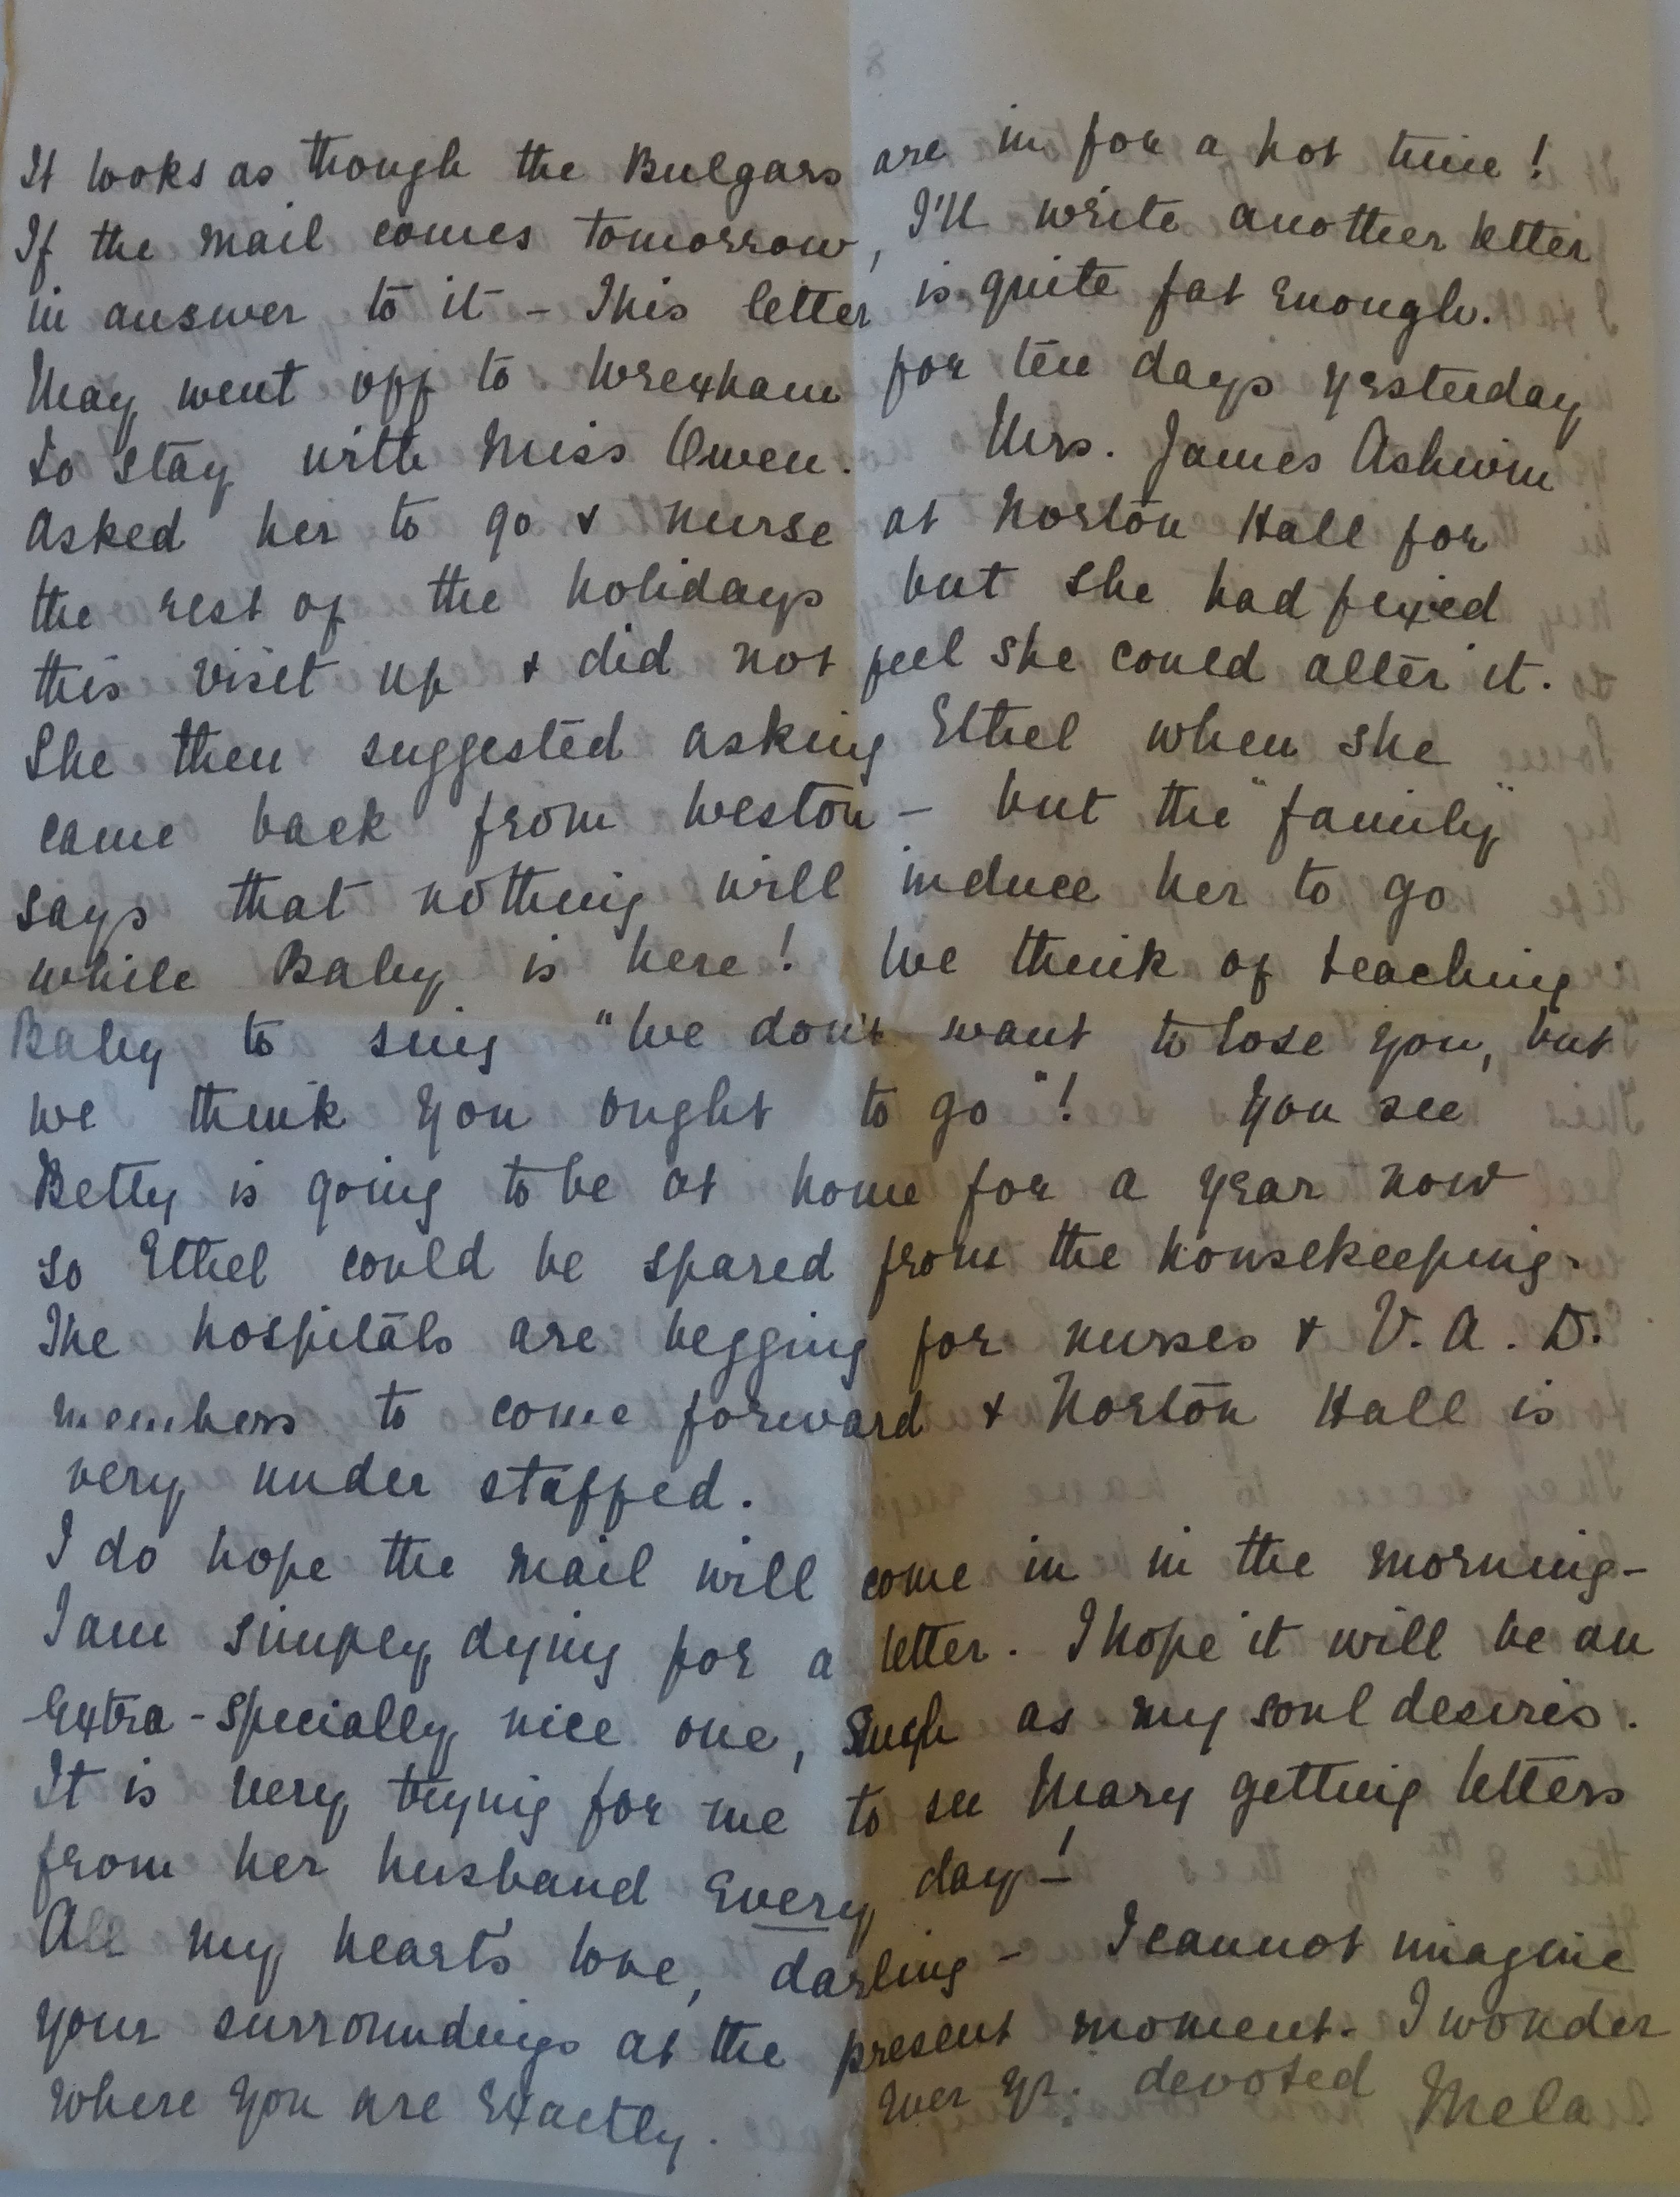 It looks as though the Bulgars are in for a hot time!
If the mail comes tomorrow, I'll write another letter
in answer to it - This letter is quite fat enough.
May went off to Wrexham for ten days yesterday
to stay with Miss Owen. Mrs. James Ashwin
asked her to go & nurse at Norton Hall for
the rest of the holidays but she had fixed
this visit up & did not feel she could alter it.
She then suggested asking Ethel when she
came back from Weston - but the "family"
says that nothing will induce her to go
while Baby is here! We think of teaching
Baby to sing "We don't want to lose you, but
we think you ought to go"! You see
Betty is going to be at home for a year now
so Ethel could be spared from the housekeeping.
The hospitals are begging for nurses & V.A.D.
members to come forward & Norton Hall is
very under staffed.
I do hope the mail will come in in the morning -
I am simply dying for a letter. I hope it will be an
extra-specially nice one, such as my soul desires.
It is very trying for me to see Mary getting letters
from her husband every day!
All my heart's love, darling - I cannot imagine
your surroundings at the present moment. I wonder
where you are exactly. Ever yr. devoted Mela